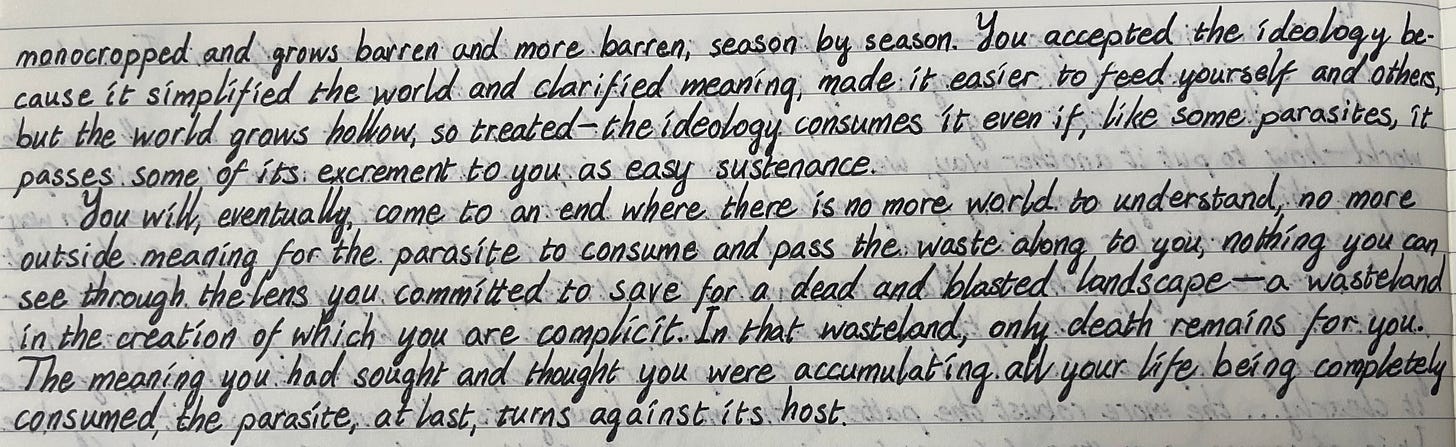 monocropped and grows barren and more barren, season by season. You accepted the ideology be-
cause it simplified the world and clarified meaning, made it easier to feed yourself and others,
but the world grows hollow, so treated—the ideology consumes it even if, like some parasites, it
passes some of its excrement to you as easy sustenance.
You will, eventually, come to an end where there is no more world to understand, no more
outside meaning for the parasite to consume and pass the waste along to you, nothing you can
see through the lens you committed to save for a dead and blasted landscape—a wasteland
in the creation of which you are complicit. In that wasteland, only death remains for you.
The meaning you had sought and thought you were accumulating all your life being completely
consumed, the parasite, at last, turns against its host.